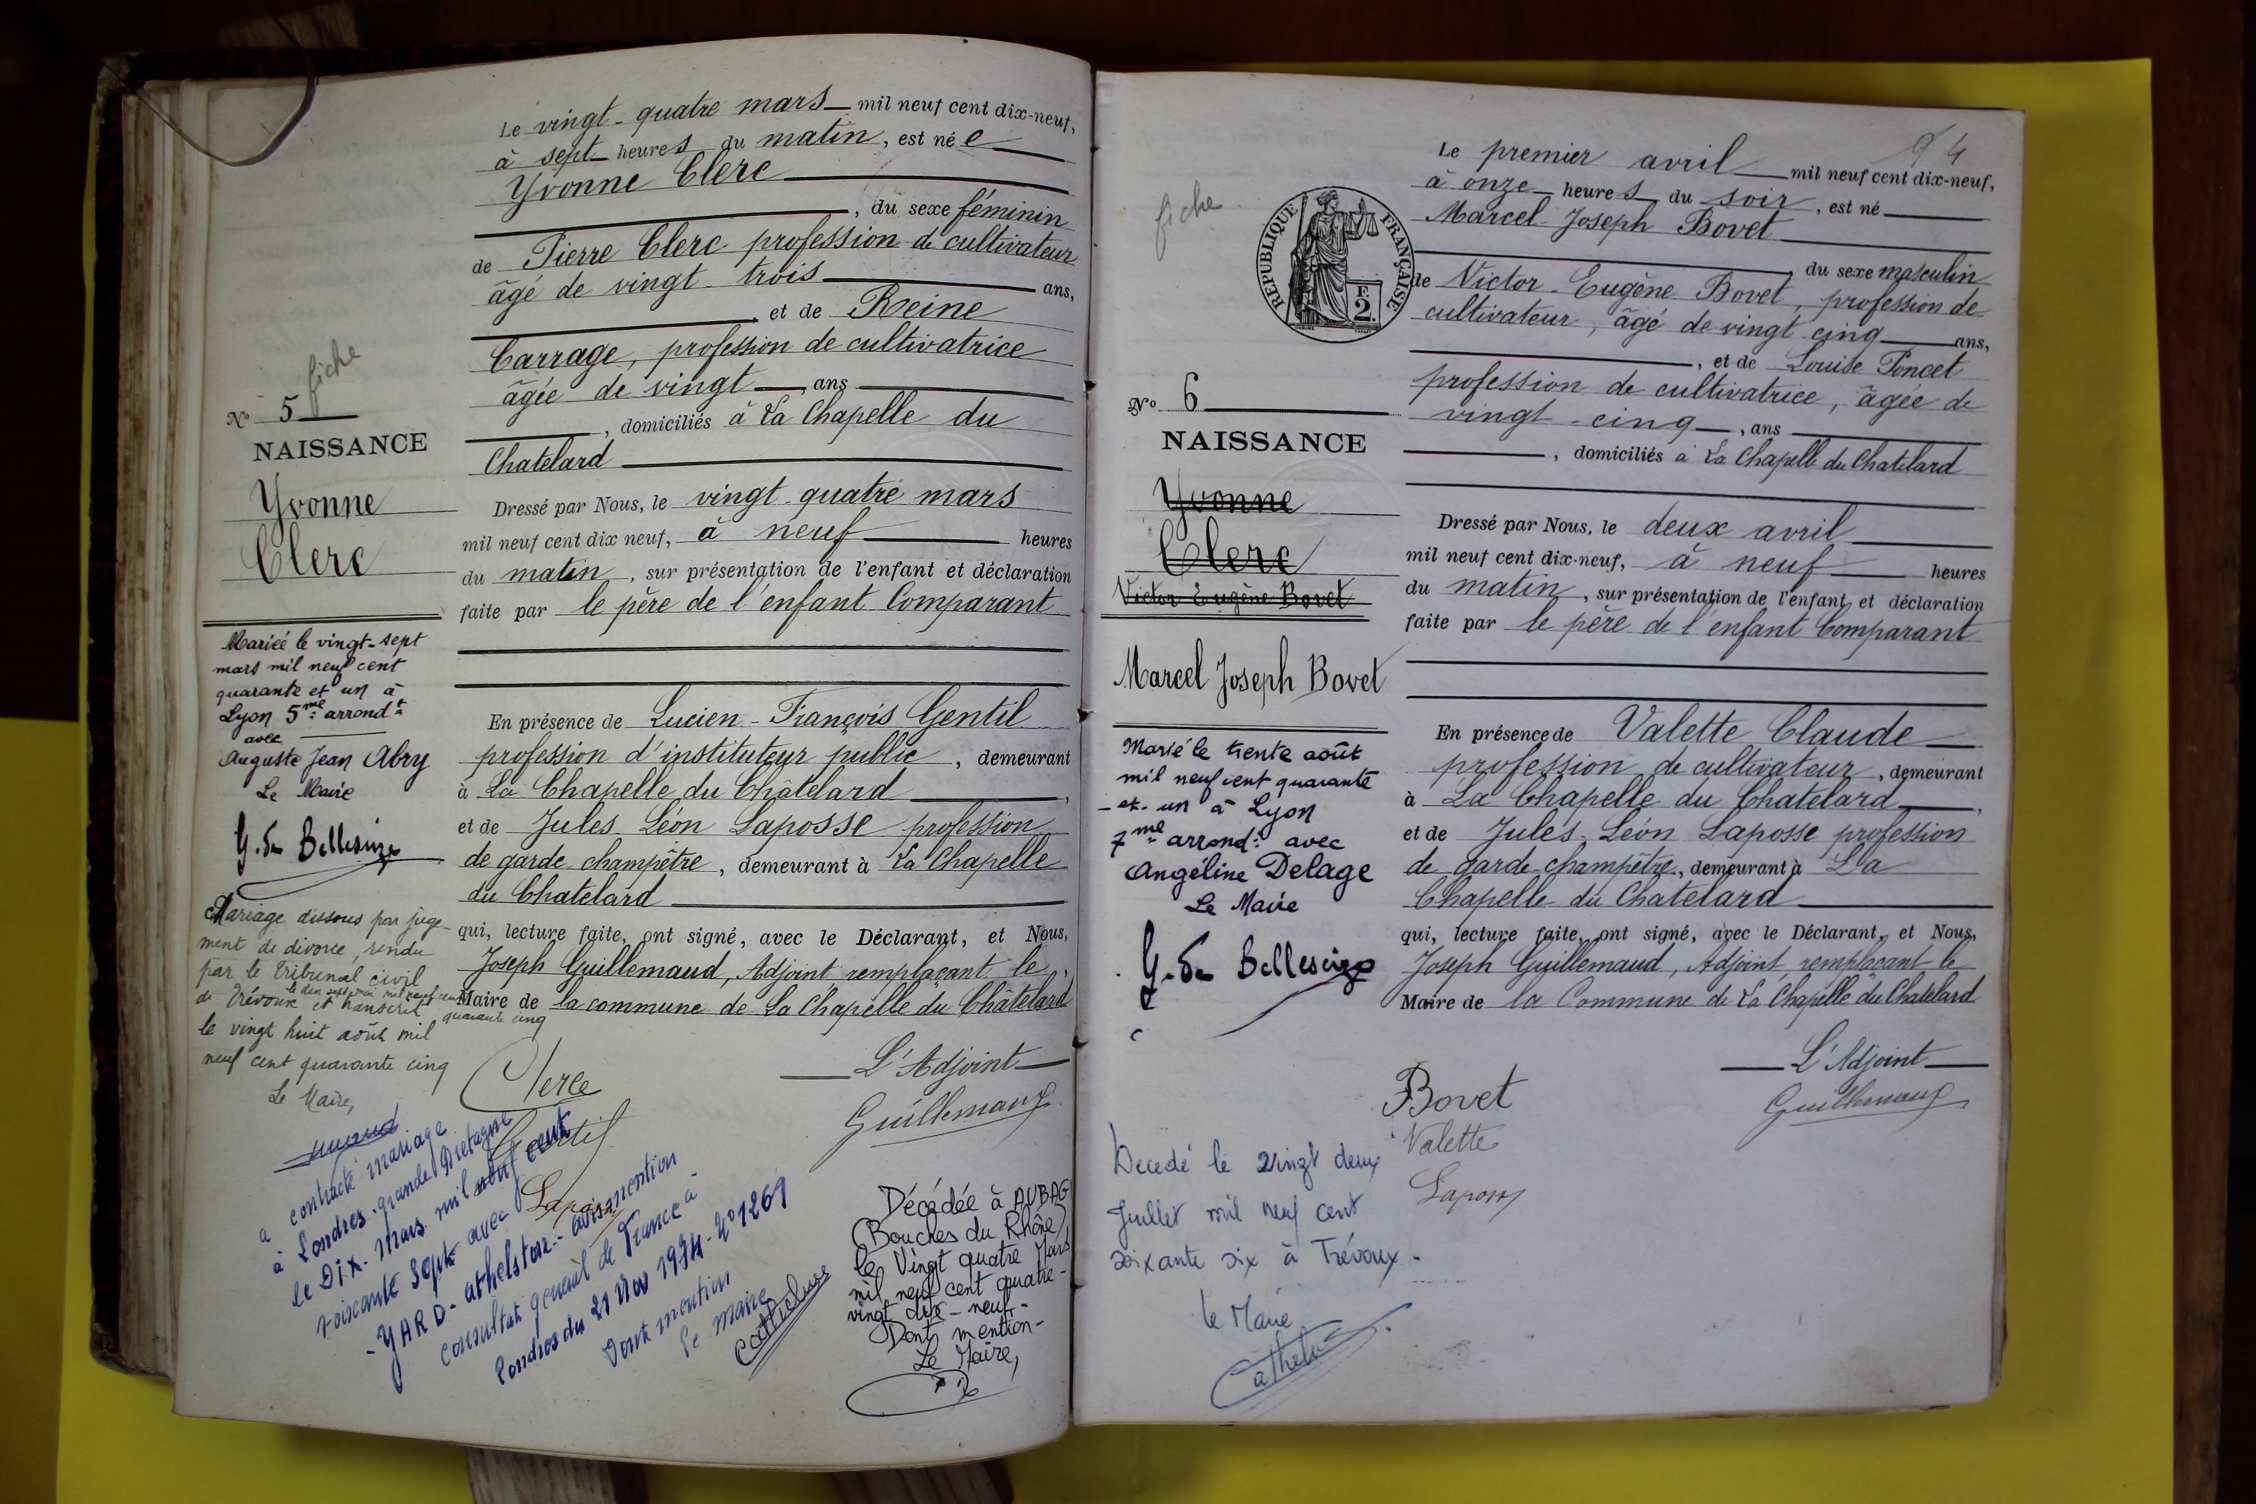 Le vingt-quatre mars mil neuf cent dix-neuf,
à sept heures du matin, est née
Yvonne Clerc
, du sexe féminin
de Pierre Clerc profession de cultivateur
âgé de vingt-trois ans,
et de Reine
Carrage, profession de cultivatrice
âgée de vingt, ans
, domiciliés à La Chapelle du
Chatelard
Dressé par Nous, le vingt-quatre mars
mil neuf cent dix neuf, à neuf heures
du matin, sur présentation de l'enfant et déclaration
faite par le père de l'enfant Comparant
En présence de Lucien-François Gentil
profession d'instituteur public, demeurant
à La Chapelle du Châtelard,
et de Jules Léon Laposse profession
de garde champêtre, demeurant à La Chapelle
du Chatelard
qui, lecture faite, ont signé, avec le Déclarant, et Nous,
Joseph Guillemaud, Adjoint remplaçant le
Maire de la commune de La Chapelle du Châtelard
L'Adjoint
Clerc
Guillemaud
Gentil
Laposse
fiche
No 5
NAISSANCE
Yvonne
Clerc
Mariée le vingt-sept
mars mil neuf cent
quarante et un à
Lyon 5me arrondt
avec
Auguste Jean Abry
Le Maire
G. de Bellescize
Mariage dissous par juge-
ment de divorce, rendu
par le Tribunal civil
le dix sept mai mil neuf cent
de Trévoux et transcrit
quarante cinq
le vingt huit août mil
neuf cent quarante cinq
Le Maire,
a contracté mariage
à Londres-grande Bretagne
le DIX-Mars mil neuf cent
soixante sept avec
-YARD-athelstan-avis mention
consultat général de France à
Londres du 21 Nov 1974-N°1269
Dont mention
le maire
Décédée à AUBAG
(Bouches du Rhône)
le Vingt quatre Mars
mil neuf cent quatre-
vingt dix-neuf-
Dont mention-
Le Maire,
94
Le premier avril mil neuf cent dix-neuf,
à onze heures du soir, est né
Marcel Joseph Bovet
du sexe masculin
de Victor-Eugène Bovet, profession de
cultivateur, âgé de vingt cinq ans,
, et de Louise Poncet
profession de cultivatrice, âgée de
vingt-cinq, ans
, domiciliés à La Chapelle du Chatelard
Dressé par Nous, le deux avril
mil neuf cent dix-neuf, à neuf heures
du matin, sur présentation de l'enfant et déclaration
faite par le père de l'enfant Comparant
En présence de Valette Claude
profession de cultivateur, demeurant
à La Chapelle du Chatelard,
et de Jules Léon Laposse profession
de garde-champêtre, demeurant à La
Chapelle du Chatelard
qui, lecture faite, ont signé, avec le Déclarant, et Nous,
Joseph Guillemaud, Adjoint remplaçant le
Maire de la Commune de La Chapelle du Chatelard
L'Adjoint
Bovet
Guillemaud
Valette
Laposse
fiche
RÉPUBLIQUE FRANÇAISE
F.
2.
No 6
NAISSANCE
Yvonne
Clerc
Victor Eugène Bovet
Marcel Joseph Bovet
Marié le trente août
mil neuf cent quarante
-et-un à Lyon
7me arrondt avec
Angéline Delage
Le Maire
G. de Bellescize
Decedé le vingt deux
Juillet mil neuf cent
soixante six à Trévoux-
le Maire